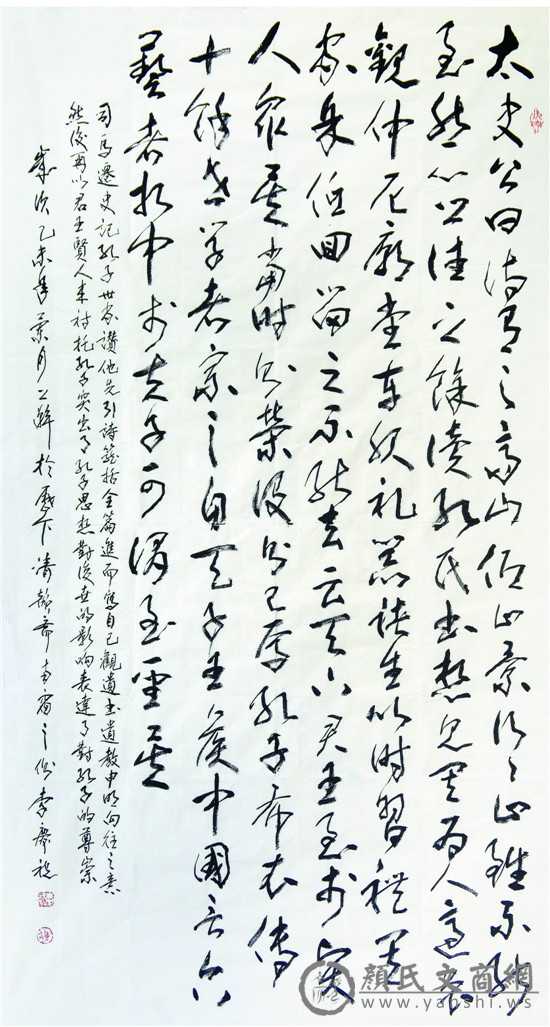 太史公曰詩有之高山仰止景行行止雖不能
至然心往之餘讀孔氏書想見其為人適魯
觀仲尼廟堂車服礼器諸生以時習禮其
家余低回留之不能去云天下君王至於賢
人眾矣當時則榮沒則已焉孔子布衣傳
十餘世學者宗之自天子王侯中國言六
藝者折中於夫子可謂至聖矣
司馬遷史記孔子世家讚他先引詩籠括全篇進而寫自己觀遺書遺教中心向往之意
然後再以君王賢人來襯托孔子突出了孔子思想對後世的影响表達了對孔子的尊崇
歲次乙未年月上澣於歷下清韵斋南窗之側李慶
顏氏文商網
www.yanshi.ws